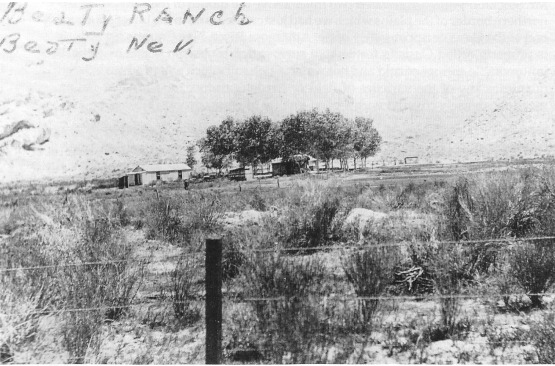 Beaty RANch
Beaty Nev.